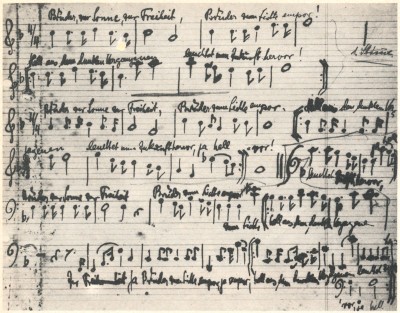 Brüder, zur Sonne, zur Freiheit, Brüder zum Licht empor!
Hell aus dem dunklen Vergangnen leuchtet uns Zukunft hervor!
Brüder zur Sonne zur Freiheit, Brüder zum Licht empor. Hell aus dem dunklen
leuchtet uns Zukunft hervor, ja hell vor!
leuchtet hervor,
Brüder zur Sonne zur Freiheit Brüder zum Licht empor
zum Licht, hell aus dem dunklen Vergangnen
Zur Freiheit ja Brüder zum Licht empor, ja empor, hell aus dem dunklen leuchtet
hell